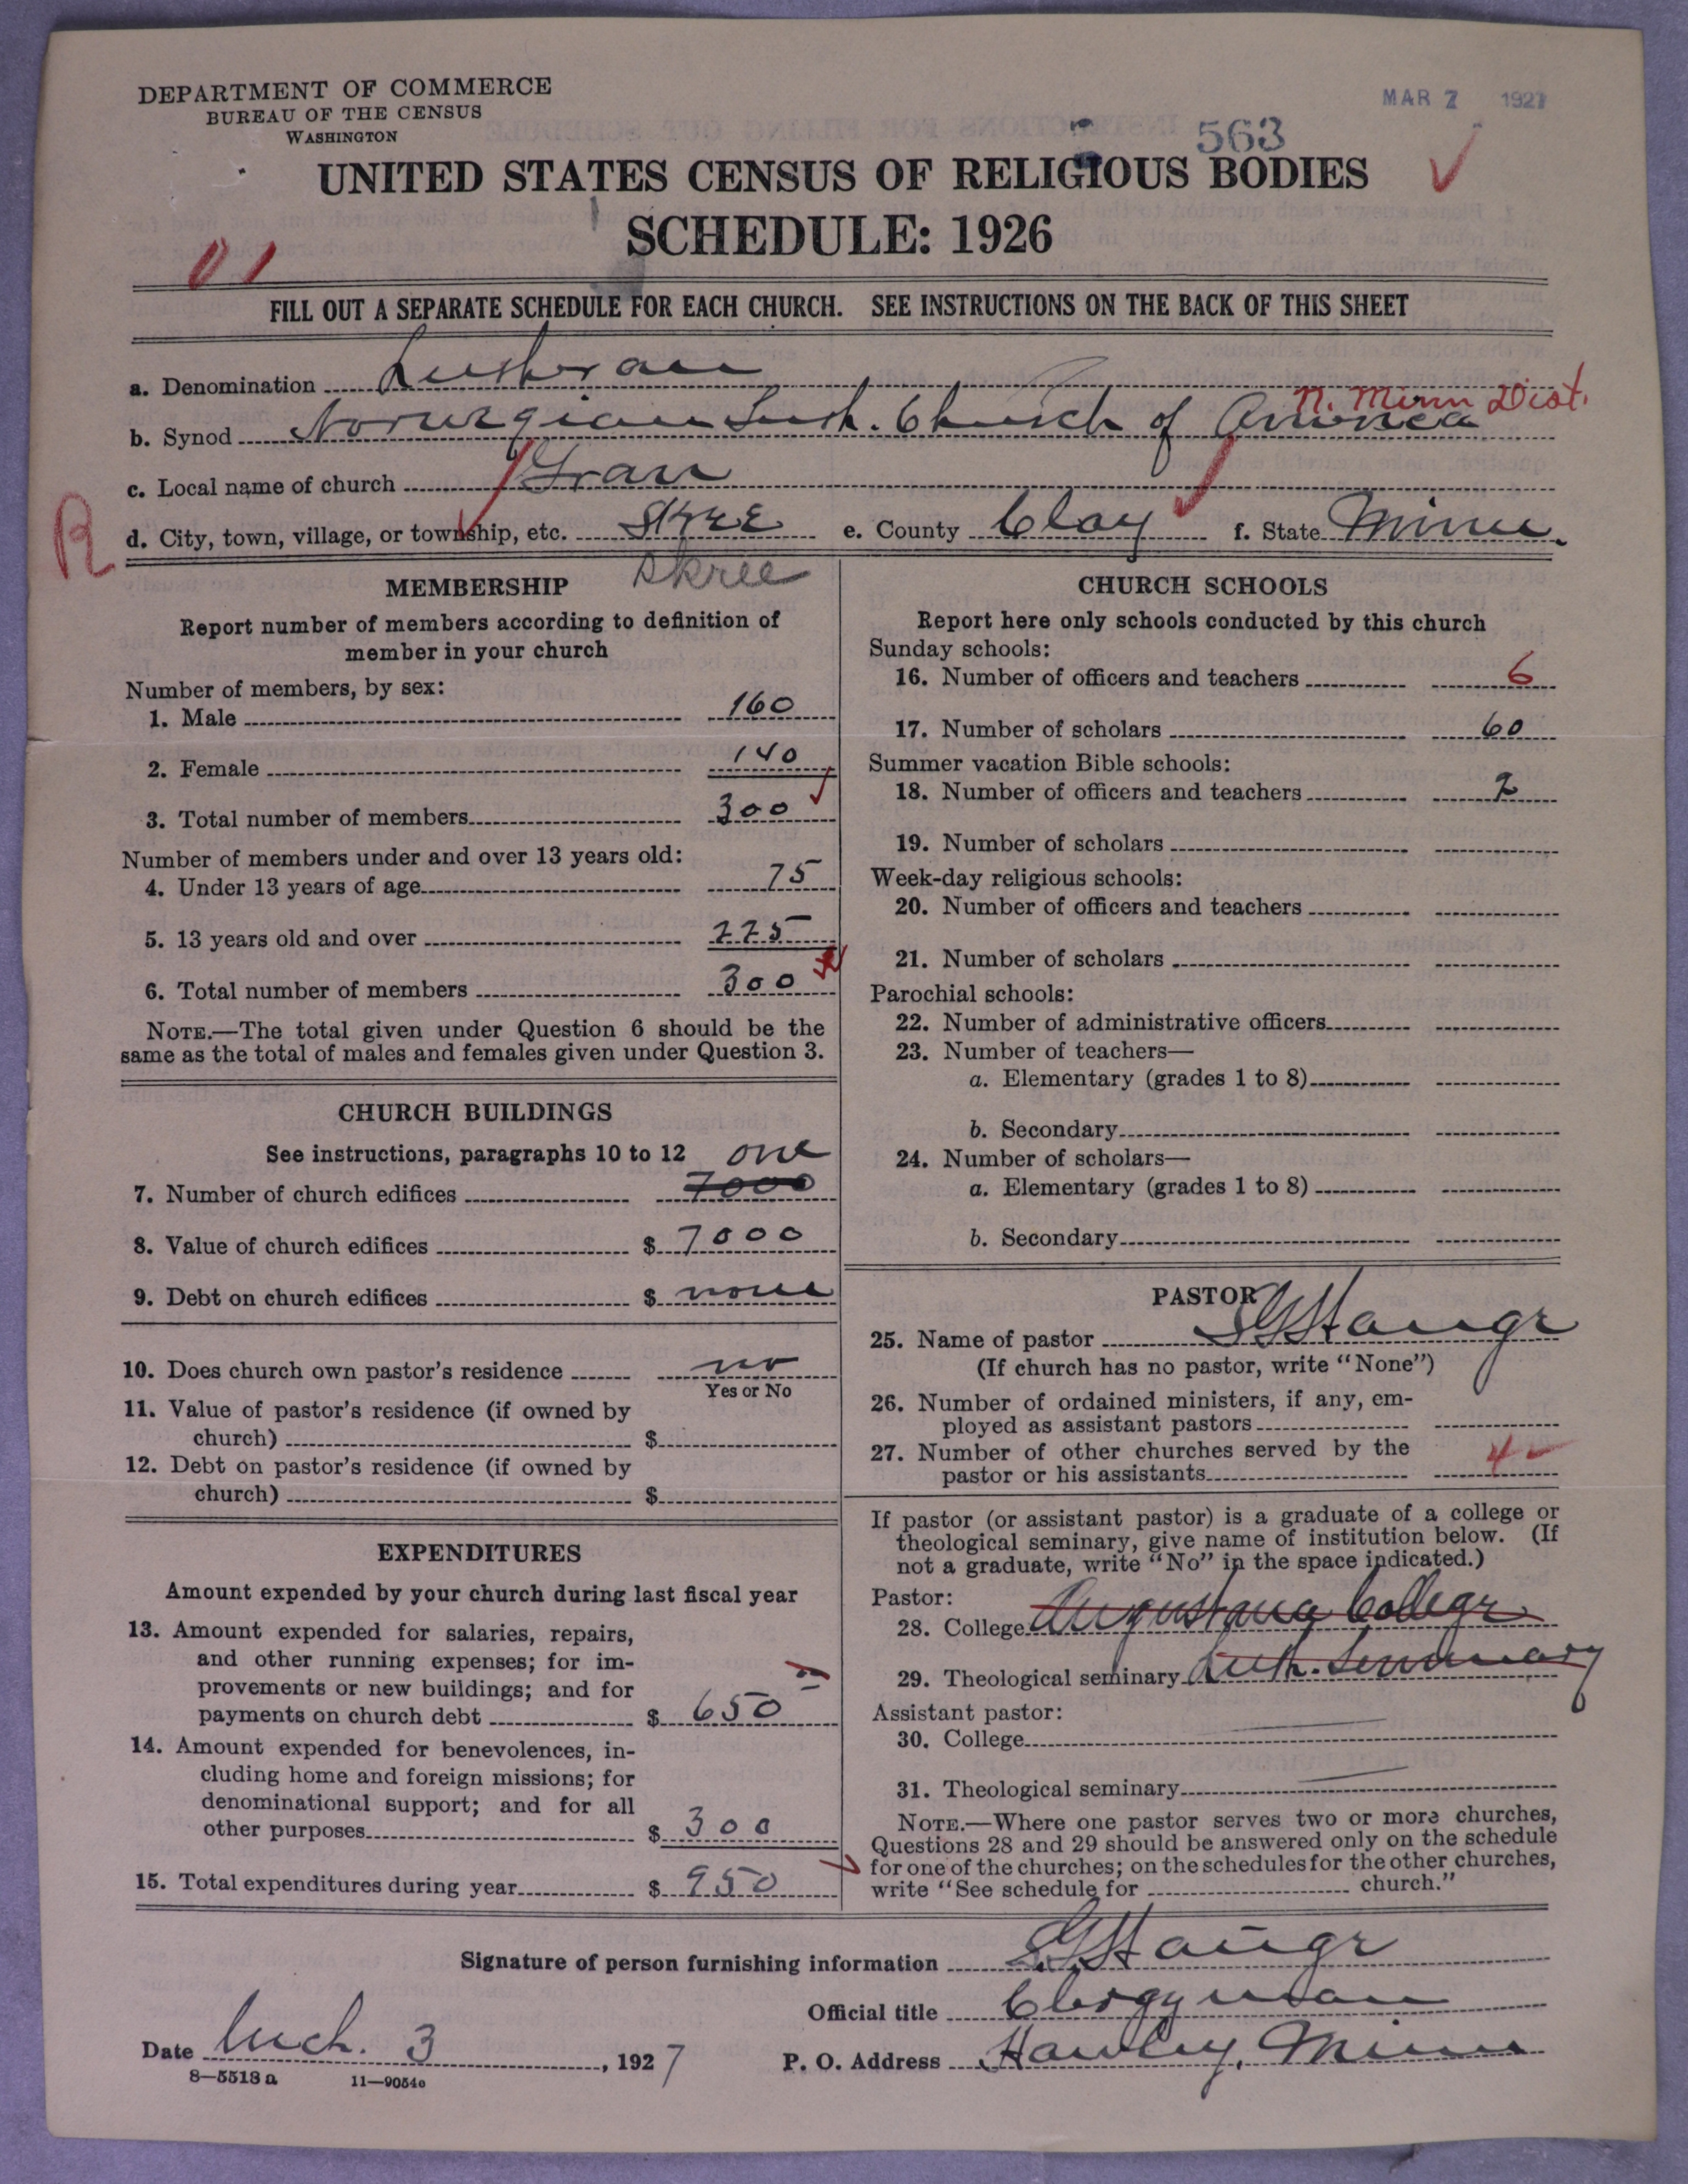 DEPARTMENT OF COMMERCE
BUREAU OF THE CENSUS
WASHINGTON
MAR 7 1927
563
UNITED STATES CENSUS OF RELIGIOUS BODIES
SCHEDULE: 1926
01
FILL OUT A SEPARATE SCHEDULE FOR EACH CHURCH. SEE INSTRUCTIONS ON THE BACK OF THIS SHEET
a. Denomination Lutheran
N. Minn Dist.
b. Synod Norwegian Luth. Church of America
c. Local name of church Gran
R
d. City, town, village, or township, etc. Skree e. County Clay f. State Minn.
Skree
MEMBERSHIP
Report number of members according to definition of
member in your church
Number of members, by sex:
1. Male 160
2. Female 140
3. Total number of members 300
Number of members under and over 13 years old:
4. Under 13 years of age 75
5. 13 years old and over 225
6. Total number of members 300
NOTE.—The total given under Question 6 should be the
same as the total of males and females given under Question 3.
CHURCH BUILDINGS
See instructions, paragraphs 10 to 12 one
7. Number of church edifices 7000
8. Value of church edifices $ 7000
9. Debt on church edifices $ none
10. Does church own pastor's residence no
Yes or No
11. Value of pastor's residence (if owned by
church) $
12. Debt on pastor's residence (if owned by
church) $
EXPENDITURES
Amount expended by your church during last fiscal year
13. Amount expended for salaries, repairs,
and other running expenses; for im-
provements or new buildings; and for
payments on church debt $ 650
14. Amount expended for benevolences, in-
cluding home and foreign missions; for
denominational support; and for all
other purposes $ 300
15. Total expenditures during year $ 950
CHURCH SCHOOLS
Report here only schools conducted by this church
Sunday schools:
16. Number of officers and teachers 6
17. Number of scholars 60
Summer vacation Bible schools:
18. Number of officers and teachers 2
19. Number of scholars
Week-day religious schools:
20. Number of officers and teachers
21. Number of scholars
Parochial schools:
22. Number of administrative officers
23. Number of teachers—
a. Elementary (grades 1 to 8)
b. Secondary
24. Number of scholars—
a. Elementary (grades 1 to 8)
b. Secondary
PASTOR
25. Name of pastor S G Hauge
(If church has no pastor, write "None")
26. Number of ordained ministers, if any, em-
ployed as assistant pastors
27. Number of other churches served by the
pastor or his assistants 4
If pastor (or assistant pastor) is a graduate of a college or
theological seminary, give name of institution below. (If
not a graduate, write "No" in the space indicated.)
Pastor:
28. College Augustana College
29. Theological seminary Luth. Seminary
Assistant pastor:
30. College
31. Theological seminary
NOTE.—Where one pastor serves two or more churches,
Questions 28 and 29 should be answered only on the schedule
for one of the churches; on the schedules for the other churches,
write "See schedule for church."
Signature of person furnishing information S. G. Hauge
Official title Clergyman
Date Mch. 3, 1927 P. O. Address Hawley, Minn
8—5518a 11—9054c